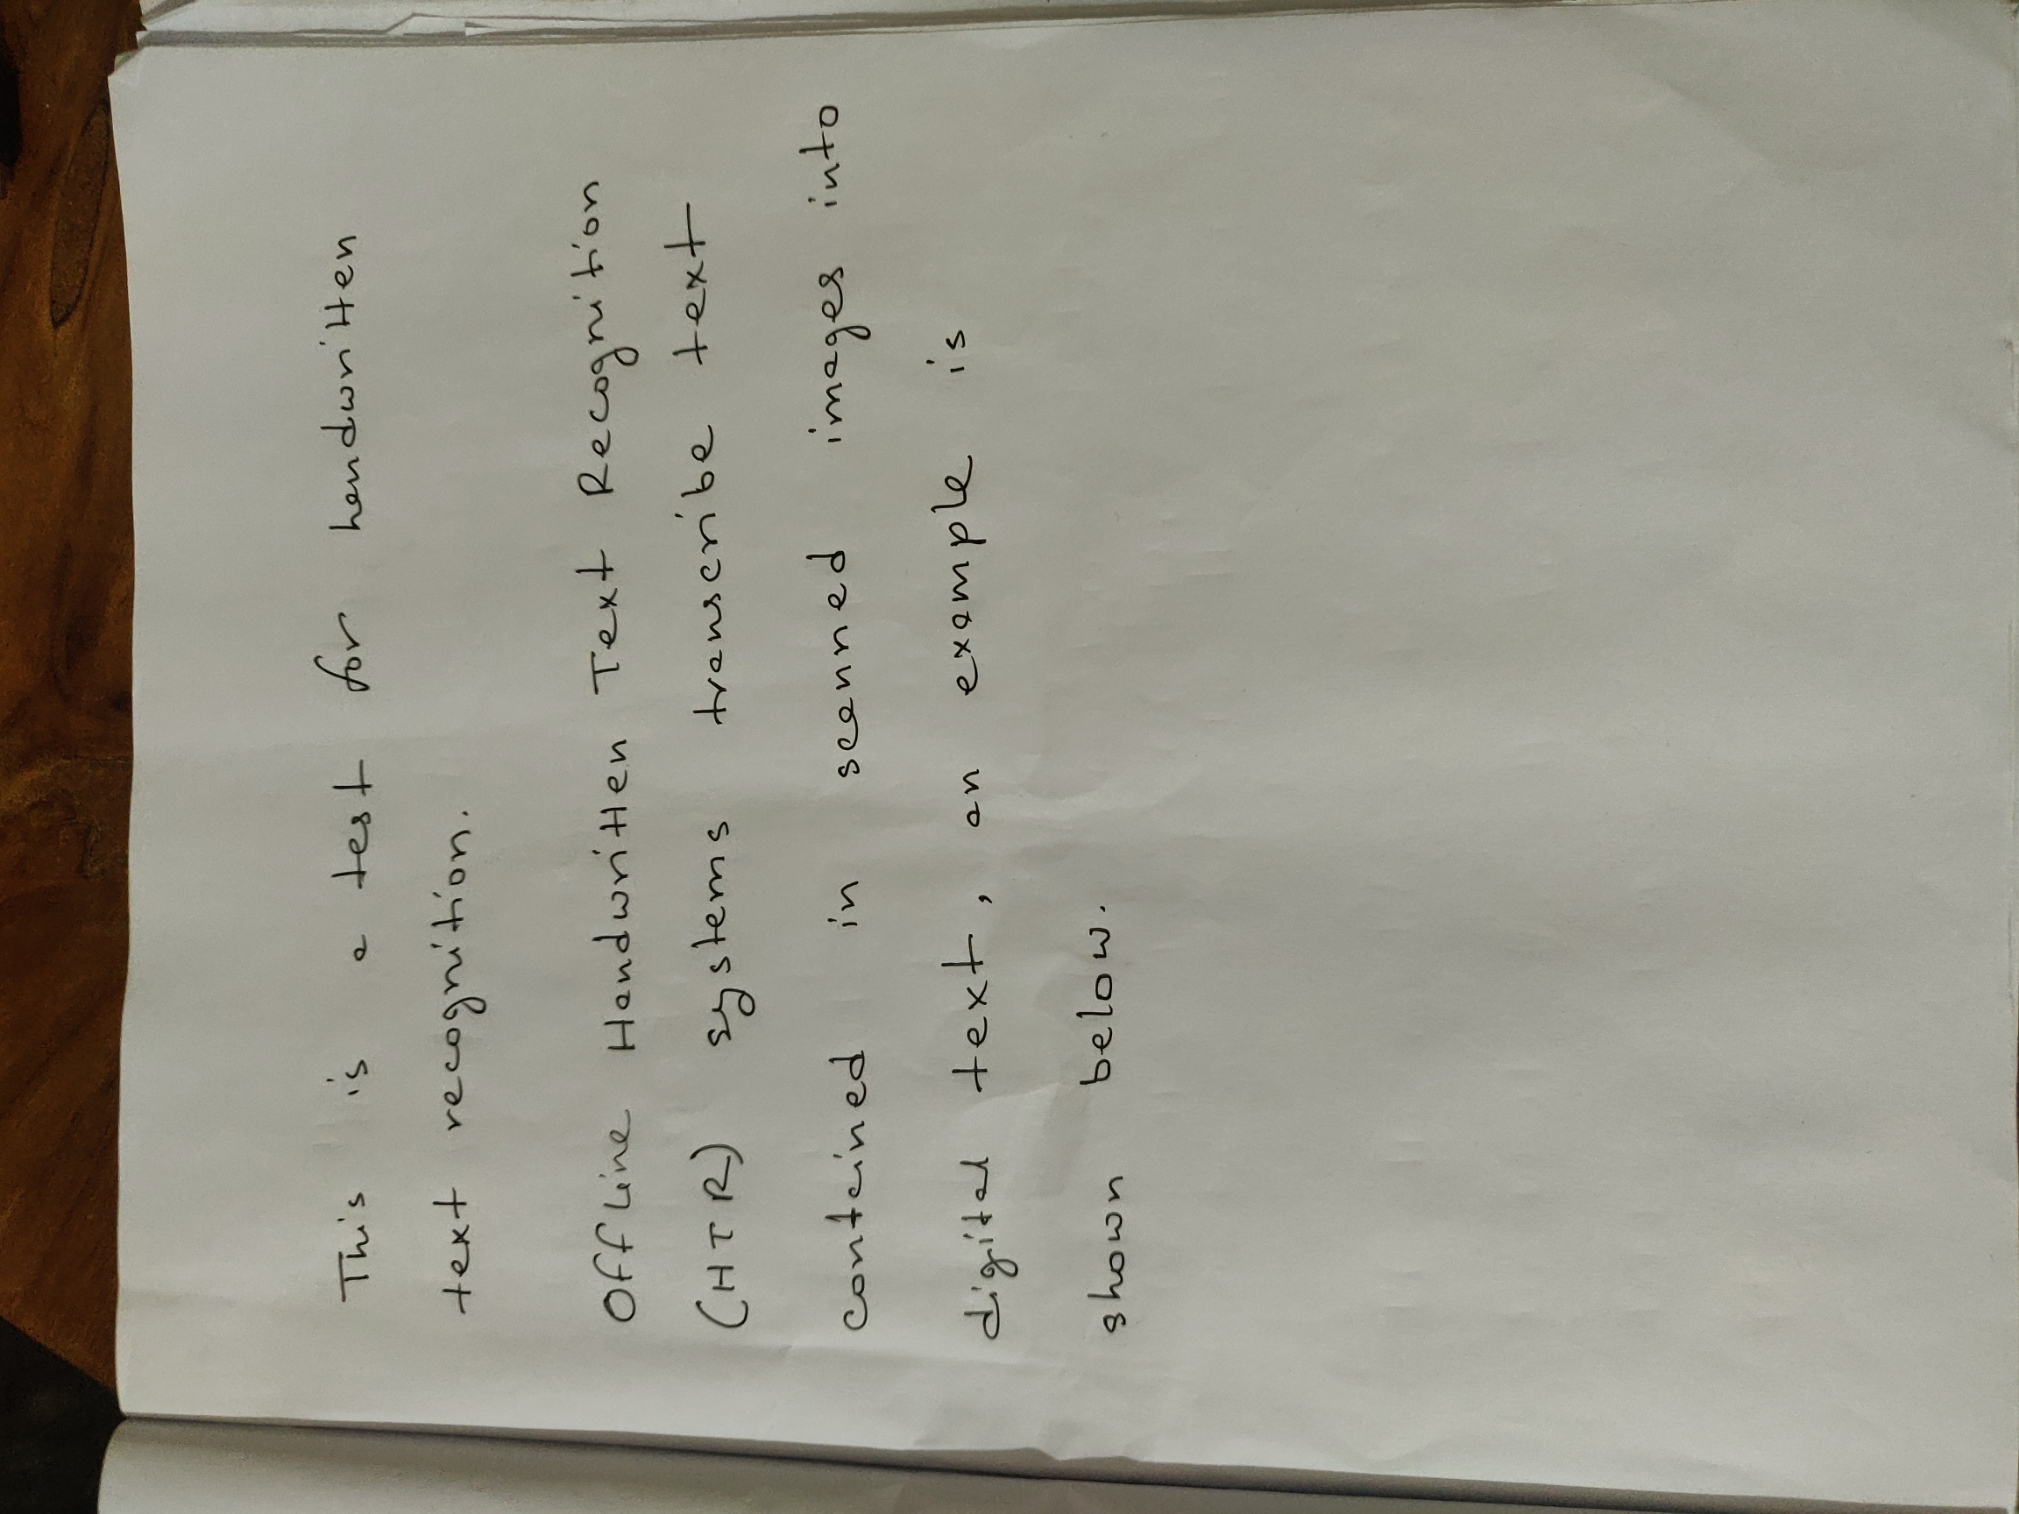 This is a test for handwritten
text recognition.
Offline Handwritten Text Recognition
(HTR) systems transcribe text
contained in scanned images into
digital text, an example is
shown below.